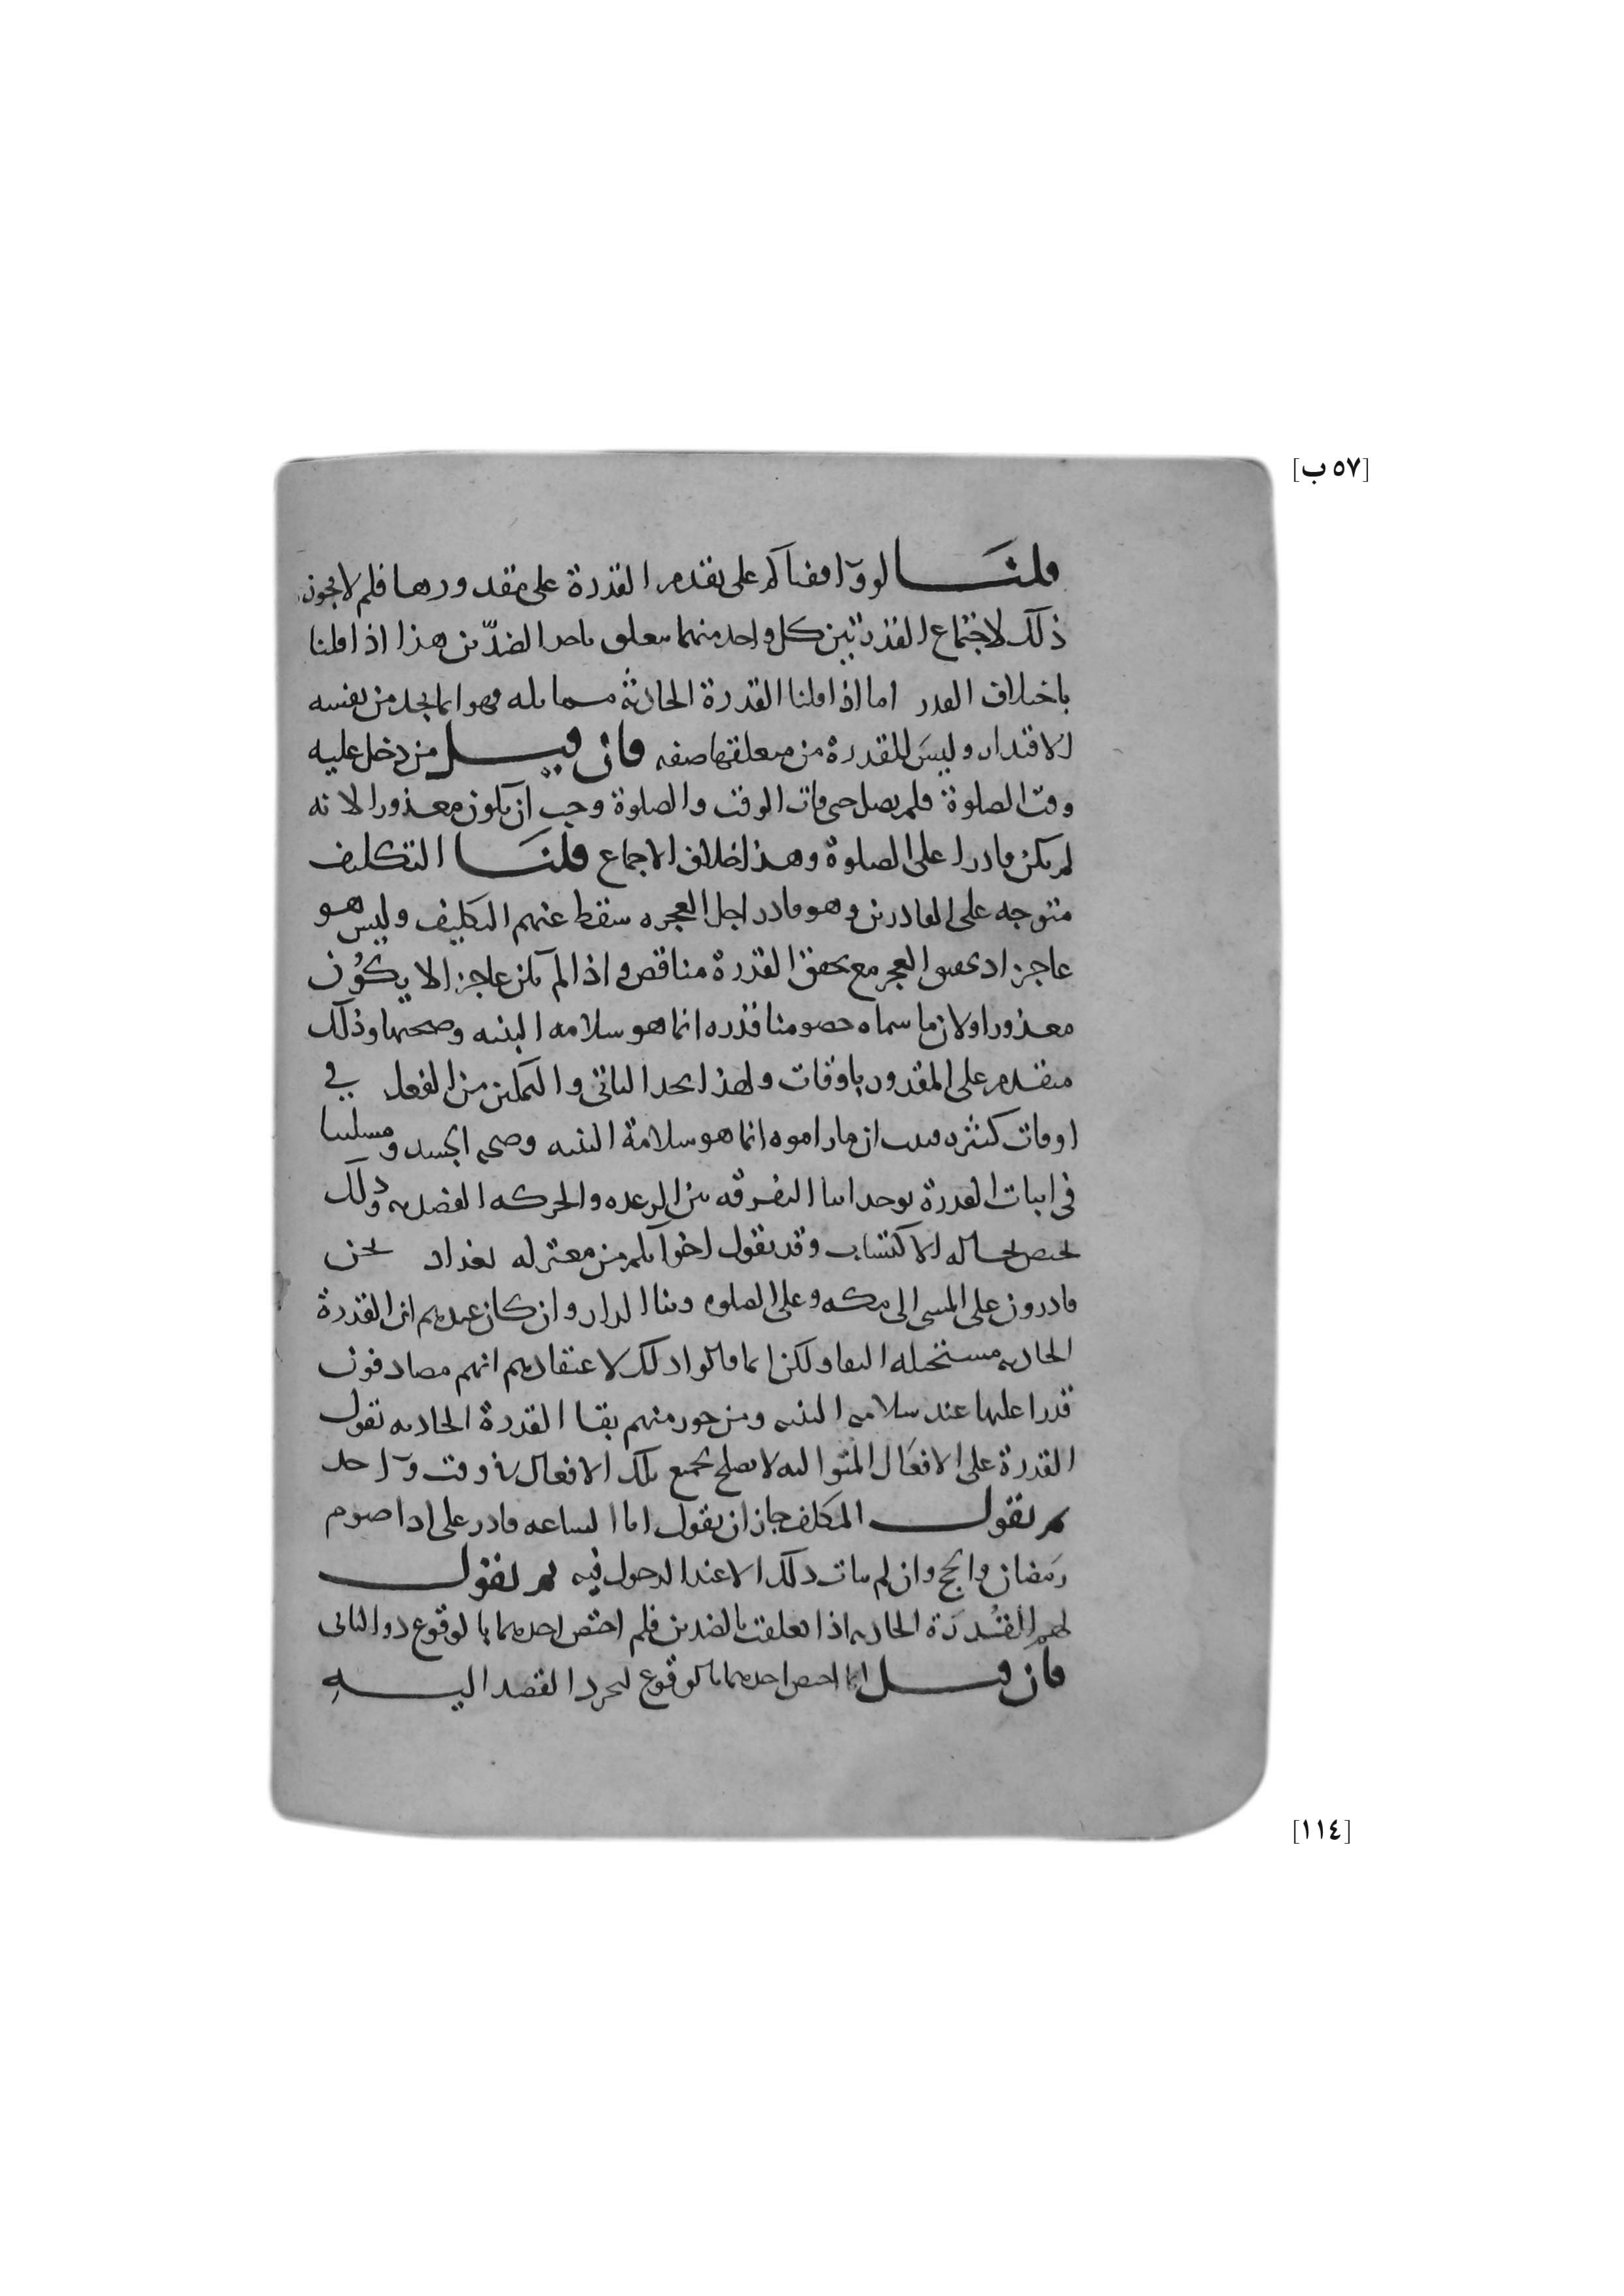 [٥٧ ب]
قلنا لو وافقناكم على تقدم القدرة على مقدورها فلم لا يجوز
ذلك لاجتماع القدرتين كل واحد منهما متعلق باحد الضدّين هذا اذا قلنا
باختلاف القدر اما اذا قلنا القدرة الحادثة متماثلة فهو انما يجد من نفسه
الاقتدار وليس للقدرة من متعلقها صفه فان قيل من دخل عليه
وقت الصلوة فلم يصل حتى فات الوقت والصلوة وجب ان يكون معذورا لانه
لم يكن قادرا على الصلوة وهذا خلاف الاجماع قلنا التكليف
متوجه على القادرين وهو قادر اجل العجزه سقط عنهم التكليف وليس هو
عاجز اذ تحقق العجز مع تحقق القدرة مناقض واذا لم يكن عاجزا لا يكون
معذورا ولان ما سماه خصومنا قدره انما هو سلامه البنيه وصحتها وذلك
متقدم على المقدور باوقات ولهذا يجد التاتي والتمكن من الفعل في
اوقات كثيره فثبت ان ما راموه انما هو سلامة البنيه وصحه الجسد ومسلكنا
في اثبات القدرة يوجد اننا التفرقه بين الرعده والحركه وذلك
يختص بحاله الاكتساب وقد يقول اخوانكم من معتزله بغداد نحن
قادرون على المشي الى مكه وعلى الصلوه وبنا الدار وان كان عندهم ان القدرة
الحادثه مستحيله البقا ولكن انما قالوا ذلك لاعتقادهم انهم مصادفون
قدرا عليها عند سلامه البنيه ومن جوز منهم بقا القدرة الحادثه تقول
القدرة على الافعال المتواليه لا تصلح لجميع تلك الافعال في وقت واحد
ثم نقول المكلف جاز ان يقول انا الساعه قادر على ادا صوم
رمضان والحج وان لم يتات ذلك الا عند الدخول فيه ثم نقول
لهم القدرة الحادثه اذا تعلقت بالضدين فلم اختص احدهما بالوقوع دون الثاني
فان قيل انما اختص احدهما بالوقوع لمجرد القصد اليه
[١١٤]